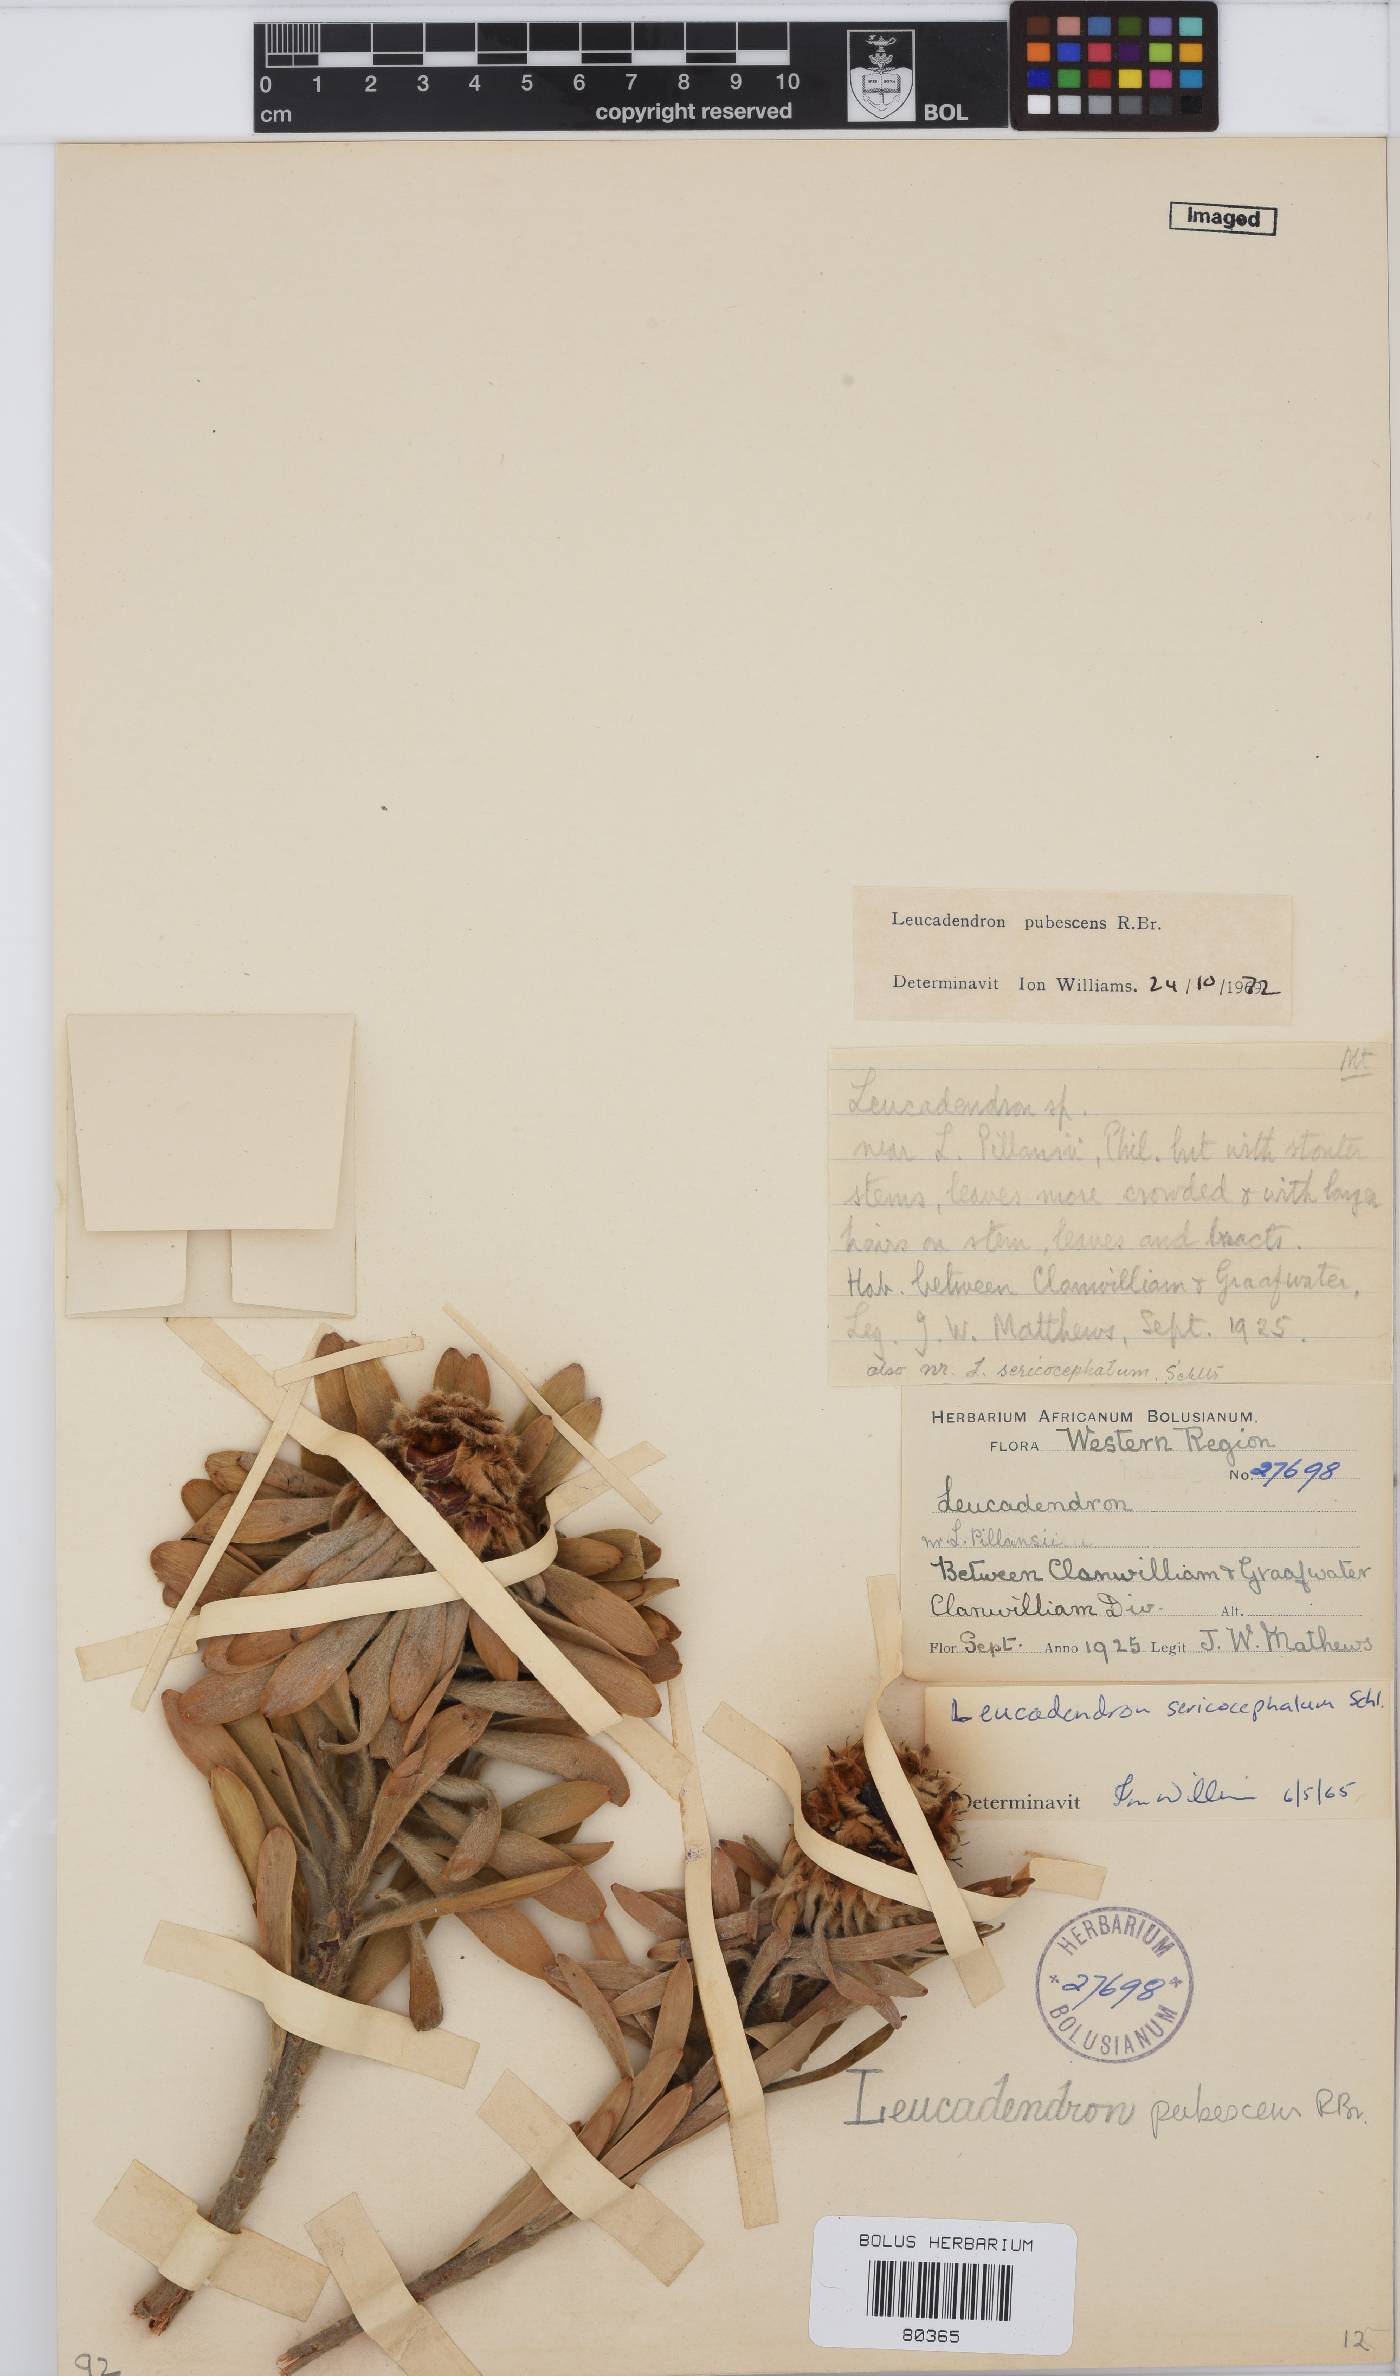 0 1 2 3 4 5 6 7 8 9 10
cm
copyright reserved
BOL
Imaged
Leucadendron pubescens R.Br.
Determinavit Ion Williams. 24/10/1972
Mt
Leucadendron sp.
near L. Pillansii, Phil. but with stouter
stems, leaves more crowded & with longer
hairs on stem, leaves and bracts.
Hab. between Clanwilliam & Graafwater,
Leg. J. W. Matthews, Sept. 1925.
also nr. L. sericocephalum, Schltr
HERBARIUM AFRICANUM BOLUSIANUM.
FLORA Western Region
No. 27698
Leucadendron
nr. L. Pillansii
Between Clanwilliam & Graafwater
Clanwilliam Div. Alt.
Flor Sept. Anno 1925 Legit J. W. Mathews
Leucadendron sericocephalum Schl.
Determinavit Ion Williams 6/5/65
HERBARIUM
27698
BOLUSIANUM
Leucadendron pubescens R.Br.
BOLUS HERBARIUM
80365
92
12